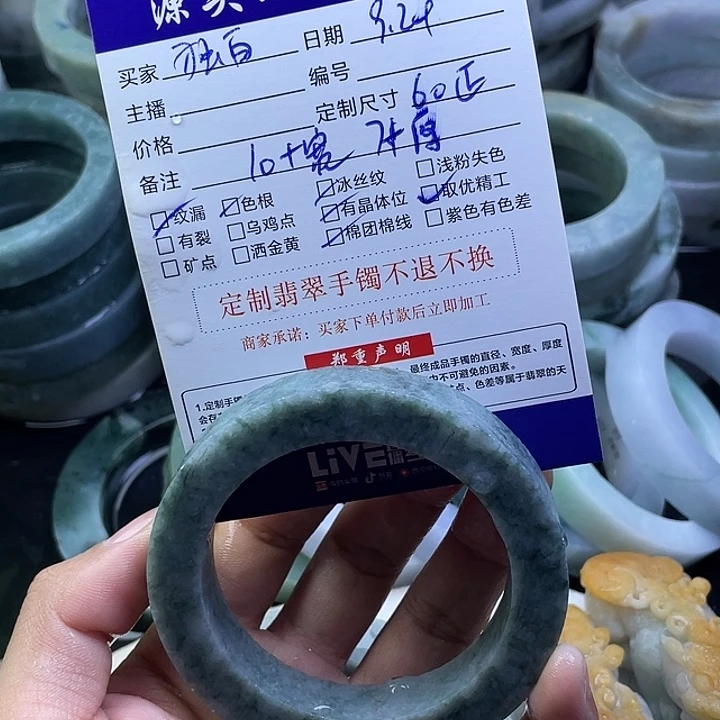 源头
买家 独白 日期 9.24
主播 编号
价格 定制尺寸 60正
备注 10+宽 7+厚
☑纹漏 ☑色根 ☑冰丝纹 □浅粉失色
□有裂 □乌鸡点 ☑有晶体位 ☑取优精工
□矿点 □洒金黄 ☑棉团棉线 □紫色有色差
定制翡翠手镯不退不换
商家承诺：买家下单付款后立即加工
郑重声明
1.定制手镯 最终成品手镯的直径、宽度、厚度
会存 内不可避免的因素。
点、色差等属于翡翠的天
LiVE